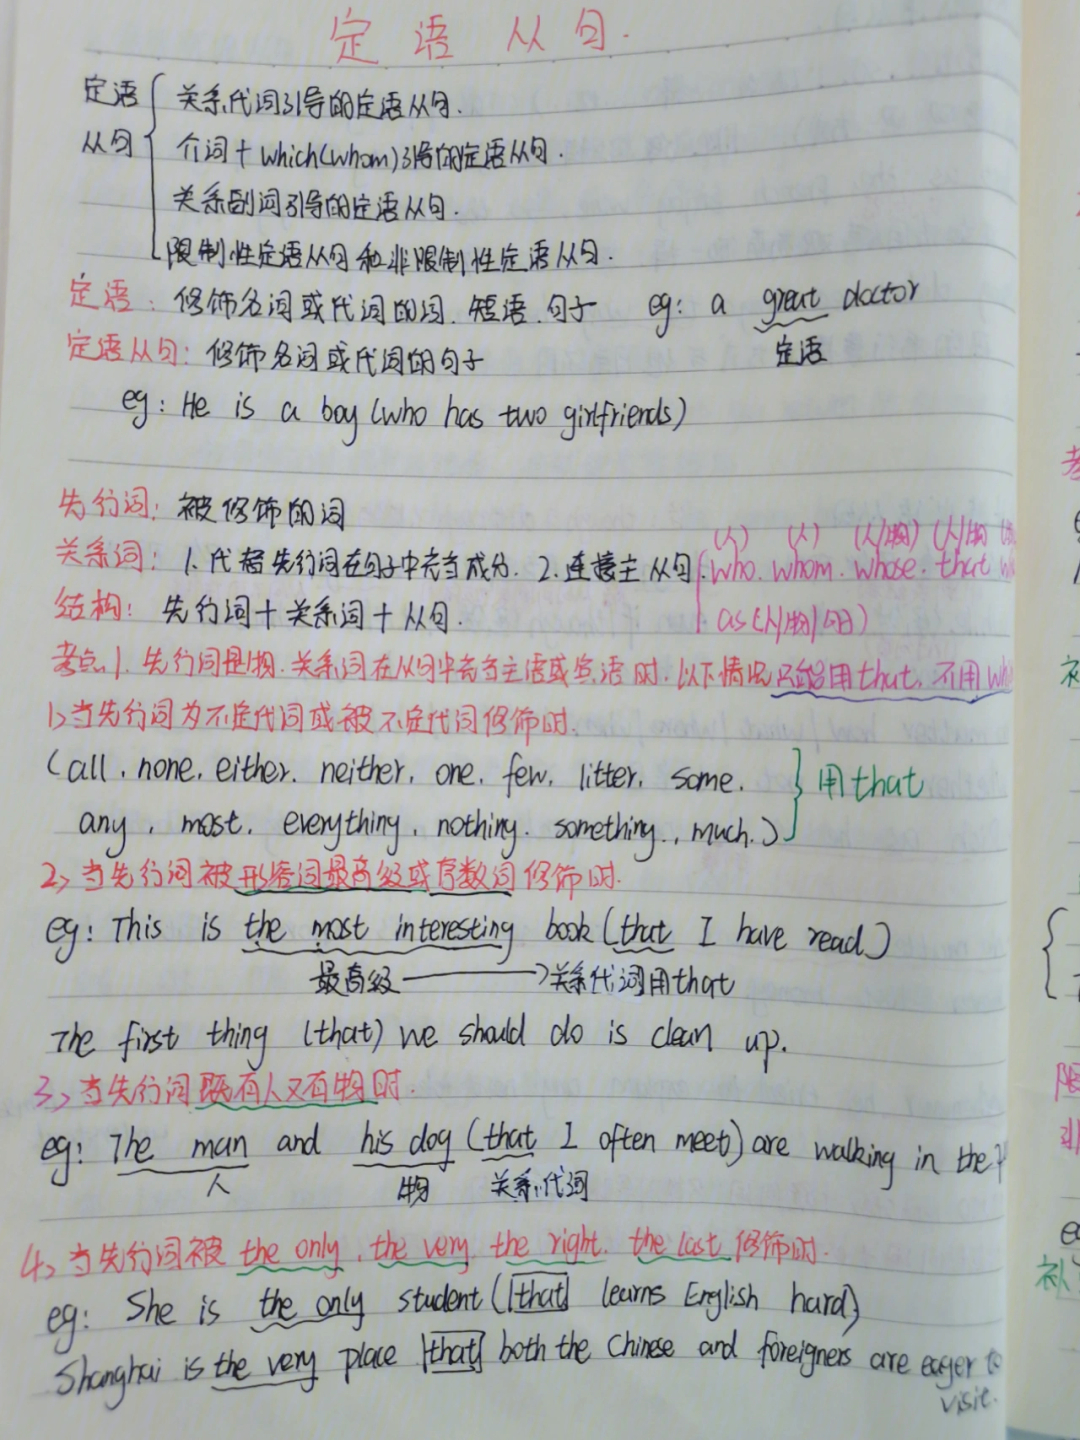 定语从句.
定语从句
关系代词引导的定语从句.
介词+which(whom)引导的定语从句.
关系副词引导的定语从句.
限制性定语从句和非限制性定语从句.
定语: 修饰名词或代词的词.短语.句子 eg: a great doctor
定语
定语从句: 修饰名词或代词的句子
eg: He is a boy (who has two girlfriends)
先行词: 被修饰的词
(人) (人) (人/物) (人/物)
关系词: 1.代替先行词在句子中充当成分. 2.连接主从句. who. whom. whose. that
as(人/物/句)
结构: 先行词+关系词+从句.
考点1. 先行词是物.关系词在从句中充当主语或宾语时.以下情况只能用that.不用
1>当先行词为不定代词或被不定代词修饰时.
(all. none. either. neither. one. few. litter. some.
用that
any. most. everything. nothing. something., much.)
2>当先行词被形容词最高级或序数词修饰时.
eg: This is the most interesting book (that I have read)
最高级→关系代词用that
The first thing (that) we should do is clean up.
3>当先行词既有人又有物时.
eg: The man and his dog (that I often meet) are walking in the
人 物 关系代词
4>当先行词被 the only. the very the right. the last 修饰时.
eg: She is the only student (that learns English hard)
Shanghai is the very place that both the Chinese and foreigners are eager to
visit.